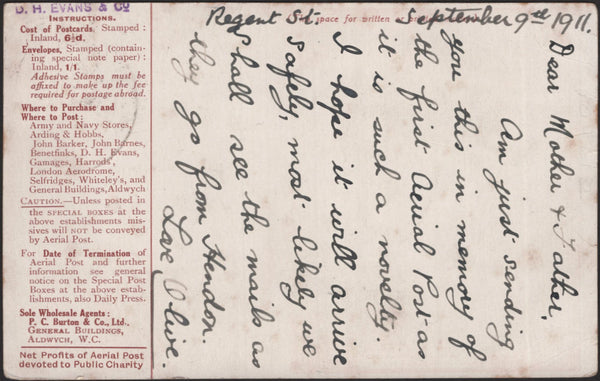 D. H. EVANS & Co
INSTRUCTIONS.
Cost of Postcards, Stamped :
Inland, 6½d.
Envelopes, Stamped (contain-
ing special note paper) :
Inland, 1/1.
Adhesive Stamps must be
affixed to make up the fee
required for postage abroad.
Where to Purchase and
Where to Post :
Army and Navy Stores,
Arding & Hobbs,
John Barker, John Barnes,
Benetfinks, D. H. Evans,
Gamages, Harrods',
London Aerodrome,
Selfridges, Whiteley's, and
General Buildings, Aldwych
CAUTION.—Unless posted in
the SPECIAL BOXES at the
above establishments mis-
sives will NOT be conveyed
by Aerial Post.
For Date of Termination of
Aerial Post and further
information see general
notice on the Special Post
Boxes at the above estab-
lishments, also Daily Press.
Sole Wholesale Agents :
P. C. Burton & Co., Ltd.,
GENERAL BUILDINGS,
ALDWYCH, W.C.
Net Profits of Aerial Post
devoted to Public Charity
space for written
Regent St. September 9th 1911.
Dear Mother & Father,
Am just sending
you this in memory of
the first Aerial Post as
it is such a novelty.
I hope it will arrive
safely, most likely we
shall see the mails as
they go from Hendon.
Love Olive.